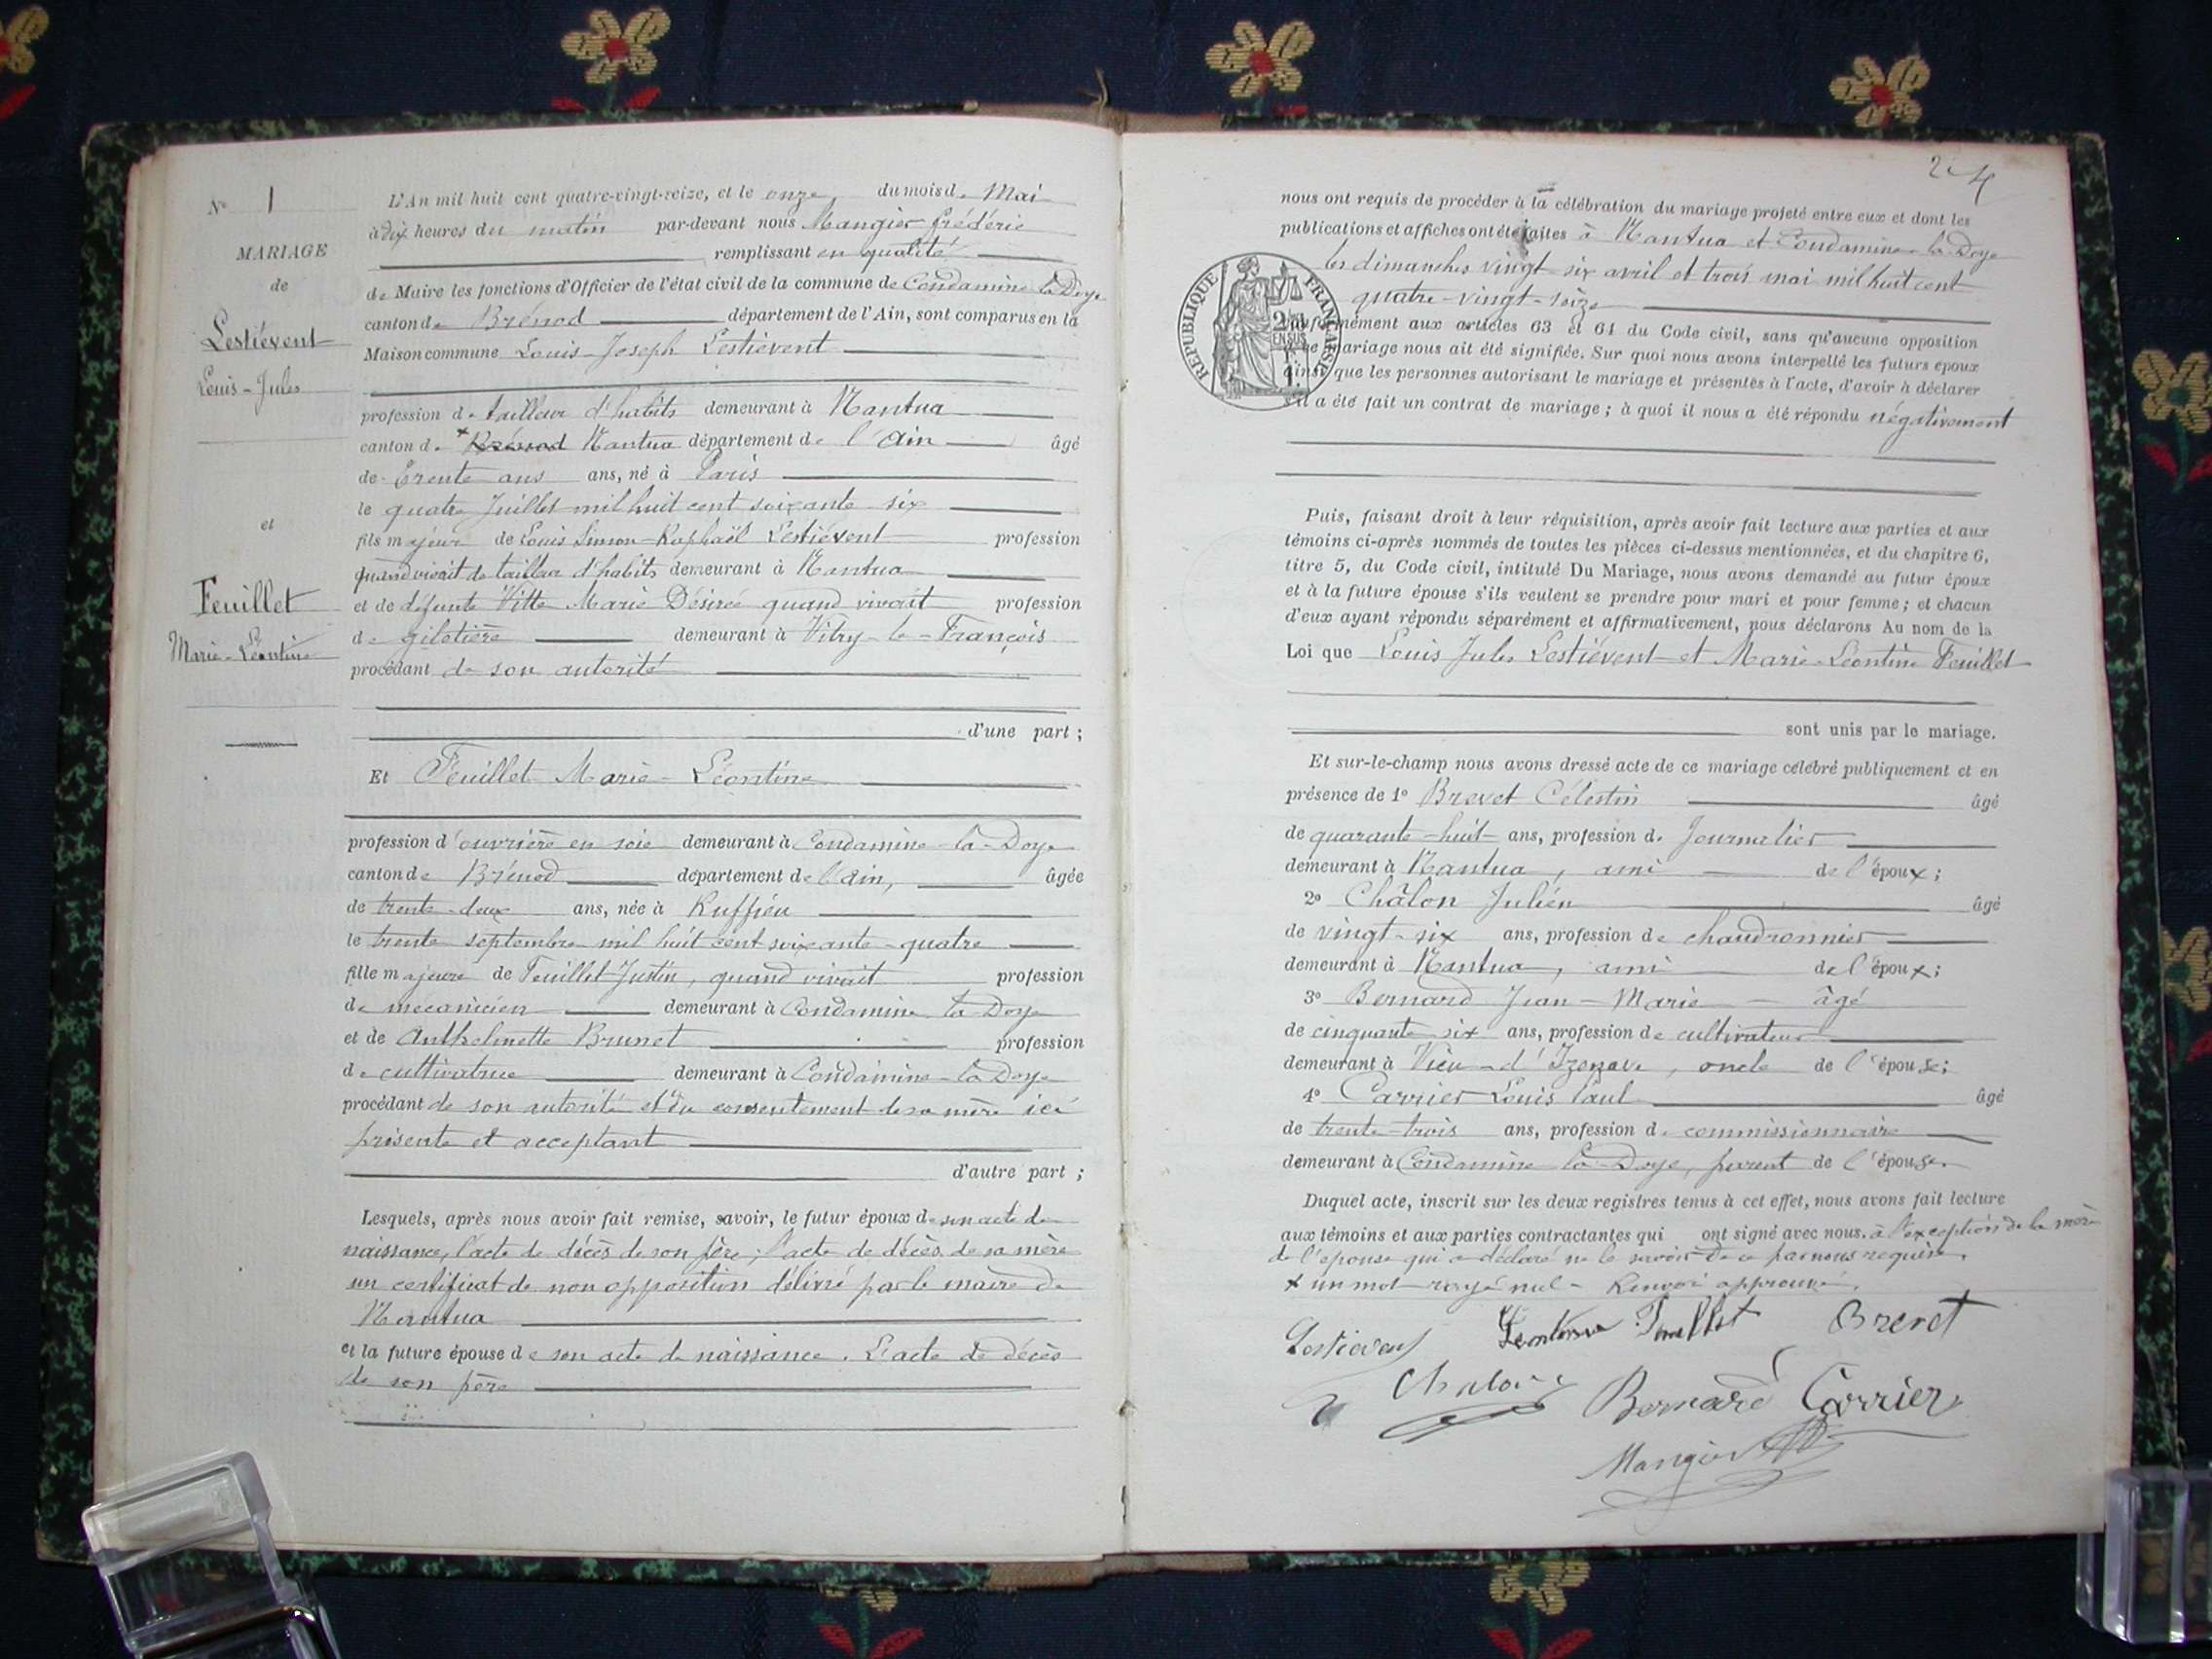 N° 1
MARIAGE
de
Lestiévent
Louis-Jules
et
Feuillet
Marie-Léontine
L'An mil huit cent quatre-vingt-seize, et le onze du mois de Mai
à dix heures du matin par-devant nous Mangier Frédéric
remplissant en qualité
de Maire les fonctions d'Officier de l'état civil de la commune de Condamine la Doye
canton de Brénod département de l'Ain, sont comparus en la
Maison commune Louis-Joseph Lestiévent
profession de tailleur d'habits demeurant à Nantua
canton de + Brénod Nantua département de l'Ain âgé
de trente ans ans, né à Paris
le quatre Juillet mil huit cent soixante six
fils majeur de Louis Simon-Raphaël Lestiévent profession
quand vivait de tailleur d'habits demeurant à Nantua
et de défunte Vitte Marie Désirée quand vivait profession
de giletière demeurant à Vitry-le-François
procédant de son autorité
d'une part ;
Et Feuillet Marie-Léontine
profession d'ouvrière en soie demeurant à Condamine-la-Doye
canton de Brénod département de l'Ain, âgée
de trente-deux ans, née à Ruffieu
le trente septembre mil huit cent soixante-quatre
fille majeure de Feuillet Justin, quand vivait profession
de mécanicien demeurant à Condamine la Doye
et de Anthelmette Brunet profession
de cultivatrice demeurant à Condamine-la Doye
procédant de son autorité et du consentement de sa mère ici
présente et acceptant
d'autre part ;
Lesquels, après nous avoir fait remise, savoir, le futur époux de son acte de
naissance, l'acte de décès de son père, l'acte de décès de sa mère
un certificat de non opposition délivré par le maire de
Nantua
et la future épouse de son acte de naissance. L'acte de décès
de son père
2 4
nous ont requis de procéder à la célébration du mariage projeté entre eux et dont les
publications et affiches ont été faites à Nantua et Condamine-la-Doye
les dimanches vingt-six avril et trois mai mil huit cent
quatre-vingt-seize
REPUBLIQUE FRANÇAISE
EN SUS
conformément aux articles 63 et 64 du Code civil, sans qu'aucune opposition
à ce mariage nous ait été signifiée. Sur quoi nous avons interpellé les futurs époux
ainsi que les personnes autorisant le mariage et présentes à l'acte, d'avoir à déclarer
s'il a été fait un contrat de mariage ; à quoi il nous a été répondu négativement
Puis, faisant droit à leur réquisition, après avoir fait lecture aux parties et aux
témoins ci-après nommés de toutes les pièces ci-dessus mentionnées, et du chapitre 6,
titre 5, du Code civil, intitulé Du Mariage, nous avons demandé au futur époux
et à la future épouse s'ils veulent se prendre pour mari et pour femme ; et chacun
d'eux ayant répondu séparément et affirmativement, nous déclarons Au nom de la
Loi que Louis Jules Lestiévent et Marie-Léontine Feuillet
sont unis par le mariage.
Et sur-le-champ nous avons dressé acte de ce mariage célébré publiquement et en
présence de 1° Brevet Célestin âgé
de quarante-huit ans, profession de Journalier
demeurant à Nantua, ami de l'époux ;
2° Châlon Julien âgé
de vingt-six ans, profession de chaudronnier
demeurant à Nantua, ami de l'époux ;
3° Bernard Jean-Marie âgé
de cinquante six ans, profession de cultivateur
demeurant à Vieu-d'Izenave, oncle de l'épouse ;
4° Carrier Louis Paul âgé
de trente-trois ans, profession de commissionnaire
demeurant à Condamine la-Doye, parent de l'épouse.
Duquel acte, inscrit sur les deux registres tenus à cet effet, nous avons fait lecture
aux témoins et aux parties contractantes qui ont signé avec nous, à l'exception de la mère
de l'épouse qui a déclaré ne le savoir de ce par nous requise.
+ un mot rayé nul - Renvoi approuvé.
Lestievent Léontine Feuillet Brevet
Chalon Bernard Carrier
Mangier